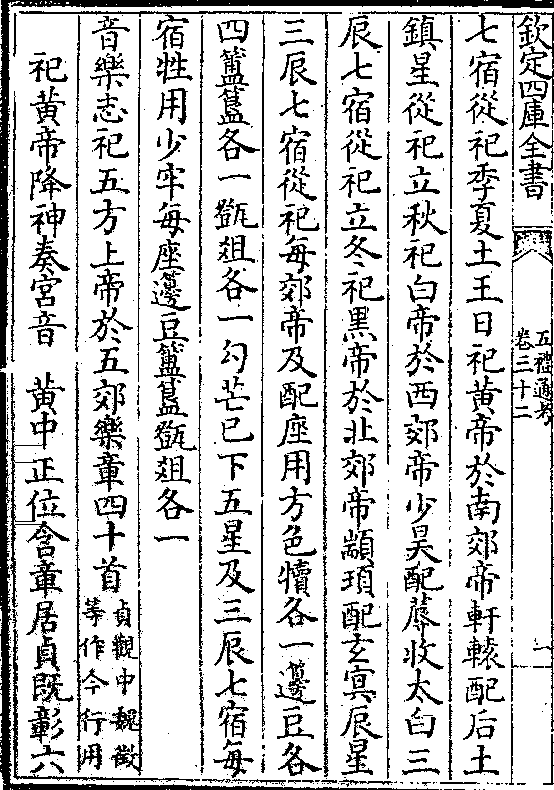 欽定四庫全書
五禮通考
卷三十二
一
七宿從祀季夏土王日祀黃帝於南郊帝軒轅配后土
鎮星從祀立秋祀白帝於西郊帝少昊配蓐收太白三
辰七宿從祀立冬祀黑帝於北郊帝顓頊配玄㝠辰星
三辰七宿從祀每郊帝及配座用方色犢各一籩豆各
四簠簋各一甑俎各一勾芒已下五星及三辰七宿每
宿牲用少牢每座籩豆簠簋甑俎各一
音樂志祀五方上帝於五郊樂章四十首貞觀中魏徵等作今行用
祀黃帝降神奏宮音　黃中正位含章居貞既彰六